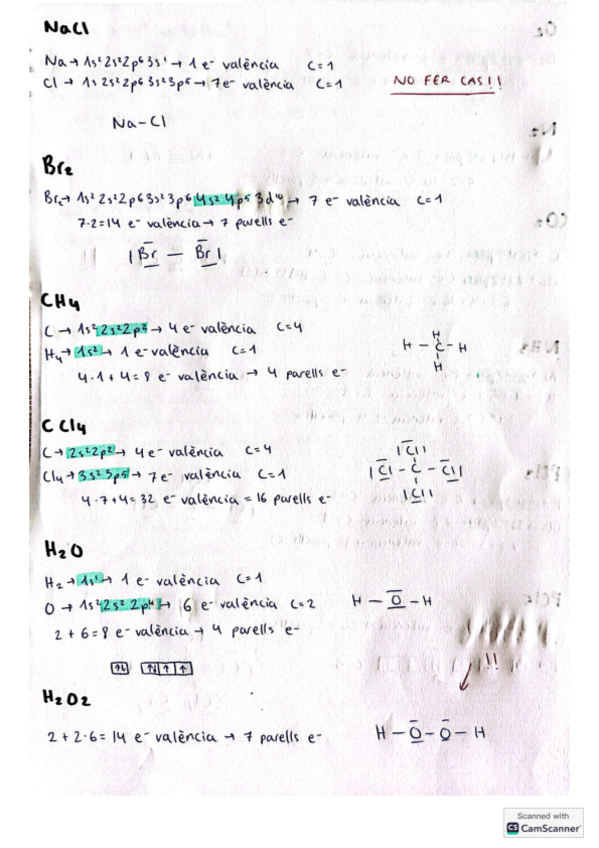 NaCl
Na → 1s² 2s² 2p⁶ 3s¹ → 1 e⁻ valència C=1
Cl → 1s 2s² 2p6 3s² 3p⁵ → 7e⁻ valència C=1
NO FER CAS!!
Na-Cl
Br₂
Br₂→ 1s² 2s² 2p6 3s² 3p⁶ 4s² 4p⁵ 3d¹⁰ → 7 e⁻ valència C=1
7·2=14 e⁻ valència → 7 parells e⁻
|Br — Br|
CH4
C → 1s² 2s² 2p² → 4 e⁻ valència C=4
H₄→ 1s² → 1 e⁻ valència C=1
4·1+4=8 e⁻ valència → 4 parells e⁻
H
H - C - H
H
CCl4
C → 2s² 2p² → 4 e⁻ valència C=4
Cl₄→ 3s² 3p⁵ → 7 e⁻ valència C=1
4·7+4=32 e⁻ valència = 16 parells e⁻
|Cl|
|Cl - C - Cl|
|Cl|
H₂O
H₂ → 1s¹ → 1 e⁻ valència C=1
O → 1s² 2s² 2p⁴ → 6 e⁻ valència C=2
2+6=8 e⁻ valència → 4 parells e⁻
H — O — H
↑↓ ↑↓ ↑ ↑
!!
H₂O₂
2+2·6=14 e⁻ valència → 7 parells e⁻
H — O — O — H
Scanned with
CS CamScanner